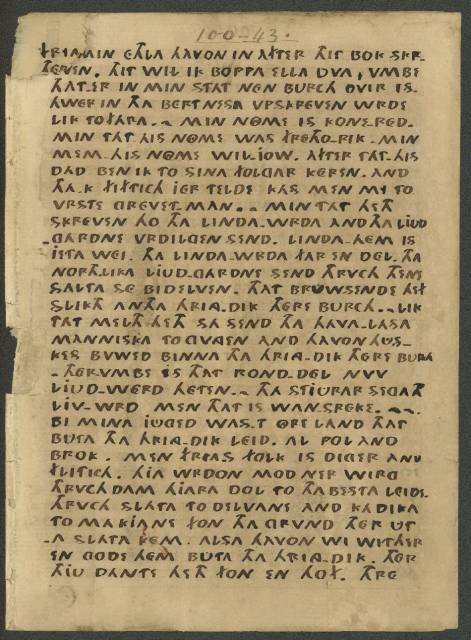 100-43.
THRIA MIN ETHLA HAVON IN AFTER THIT BOK SKR-
EVEN. THIT WIL IK BOPPA ELLA DVA, VMBE
THAT ER IN MIN STAT NEN BURCH OVIR IS.
HWER IN THA BERTNESA VPSKREVEN WRDE
LIK TO FARA. ~ MIN NOME IS KONE-RED.
MIN TAT HIS NOME WAS FRETHO-RIK. MIN
MEM-HIS NOME WILIOW. AFTER TAT-HIS
DAD BEN IK TO SINA FOLGAR KEREN. AND
THA.K FIFTICH IER TELDE KAS MEN MY TO
VRSTE GREVET-MAN. ~ MIN TAT HETH
SKREVEN HO THA LINDA-WRDA AND THA LIUD
-GARDNE VRDILGEN SEND. LINDA-HEM IS
IETA WEI. THA LINDA-WRDA FAR EN DEL. THA
NORTH-LIKA LIUD-GARDNE SEND THRVCH THENE
SALTA SE BIDELVEN. THAT BRUWSENDE HEF
SLIKTH AN THA HRING-DIK THERE BURCH.~LIK
TAT MELTH HETH SA SEND THA HAVA-LASA
MANNISKA TO GVNGEN AND HAVON HUS-
KES BUWED BINNA THA HRING-DIK THERE BURCH
-THERVMBE IS THAT ROND-DEL NVV
LIUD-WERD HETEN.~ THA STIURAR SEGATH
LIV-WRD MEN THAT IS WANSPREKE. ~~.
BI MINA IUGED WAS.T ORE LAND THAT
BUTA THA HRING-DIK LEID. AL POL AND
BROK. MEN FRYAS FOLK IS DIGER AND
FLITICH. HIA WRDON MOD NER WIRG
THRVCH DAM HIARA DOL TO THA BESTA LEIDE.
THRVCH SLATA TO DELVANE AND KADIKA
TO MAKIANE FON THA GRVND THER UT
-A SLATA KEM. ALSA HAVON WI WITHER
EN GODE HEM BUTA THA HRING-DIK. THER
THIU DANTE HETH FON EN HOF. THRE